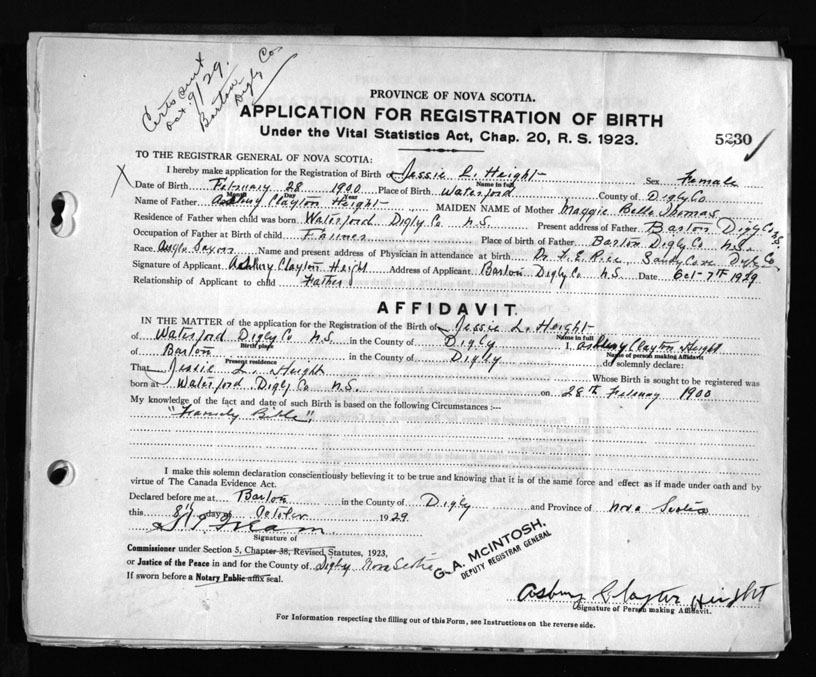 Certs sent
Oct. 9/29.
Barton
Digby Co
PROVINCE OF NOVA SCOTIA.
APPLICATION FOR REGISTRATION OF BIRTH
Under the Vital Statistics Act, Chap. 20, R. S. 1923.
5230
TO THE REGISTRAR GENERAL OF NOVA SCOTIA:
I hereby make application for the Registration of Birth of Jessie L. Height Sex Female
Name in full
Date of Birth February 28 1900 Place of Birth Waterford County of Digby Co
Month Day Year
Name of Father Asbury Clayton Height MAIDEN NAME of Mother Maggie Belle Thomas
Residence of Father when child was born Waterford Digby Co N.S. Present address of Father Barton Digby Co N.S.
Occupation of Father at Birth of child Farmer Place of birth of Father Barton Digby Co N.S.
Race Anglo Saxon Name and present address of Physician in attendance at birth Dr. F. E. Rice Sandy Cove Digby Co
Signature of Applicant Asbury Clayton Height Address of Applicant Barton Digby Co N.S. Date Oct-7th 1929
Relationship of Applicant to child Father
AFFIDAVIT.
IN THE MATTER of the application for the Registration of the Birth of Jessie L. Height
Name in full
of Waterford Digby Co N.S. in the County of Digby I, Asbury Clayton Height
Birth place Name of person making Affidavit
of Barton in the County of Digby do solemnly declare:
Present residence
That Jessie L. Height Whose Birth is sought to be registered was
born at Waterford Digby Co N.S. on 28th February 1900
My knowledge of the fact and date of such Birth is based on the following Circumstances :—
"Family Bible"
I make this solemn declaration conscientiously believing it to be true and knowing that it is of the same force and effect as if made under oath and by
virtue of The Canada Evidence Act.
Declared before me at Barton in the County of Digby and Province of Nova Scotia
this 8th day of October 1929
Signature of
Commissioner under Section 5, Chapter 38, Revised Statutes, 1923,
or Justice of the Peace in and for the County of Digby Nova Scotia
If sworn before a Notary Public affix seal.
G. A. McINTOSH.
DEPUTY REGISTRAR GENERAL
Asbury Clayton Height
Signature of Person making Affidavit.
For Information respecting the filling out of this Form, see Instructions on the reverse side.